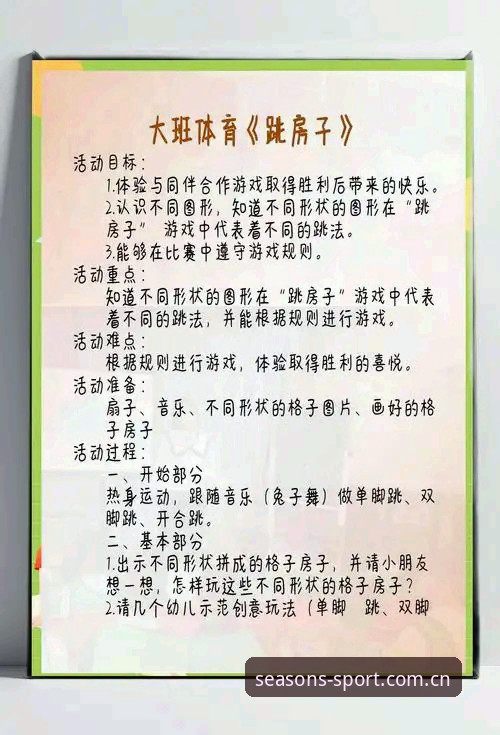 大班体育《跳房子》
活动目标：
1.体验与同伴合作游戏取得胜利后带来的快乐。
2.认识不同图形，知道不同形状的图形在“跳
房子” 游戏中代表着不同的跳法。
3.能够在比赛中遵守游戏规则。
活动重点：
知道不同形状的图形在“跳房子”游戏中代表
着不同的跳法，并能根据规则进行游戏。
活动难点：
根据规则进行游戏，体验取得胜利的喜悦。
活动准备：
扇子、音乐、不同形状的格子图片、画好的格
子房子
活动过程：
一、开始部分
热身运动，跟随音乐（兔子舞）做单脚跳、双
脚跳、开合跳。
二、基本部分
1.出示不同形状拼成的格子房子，并请小朋友
想一想，怎样玩这些不同形状的格子房子？
2.请几个幼儿示范创意玩法（单脚 跳、双脚
seasons-sport.com.cn